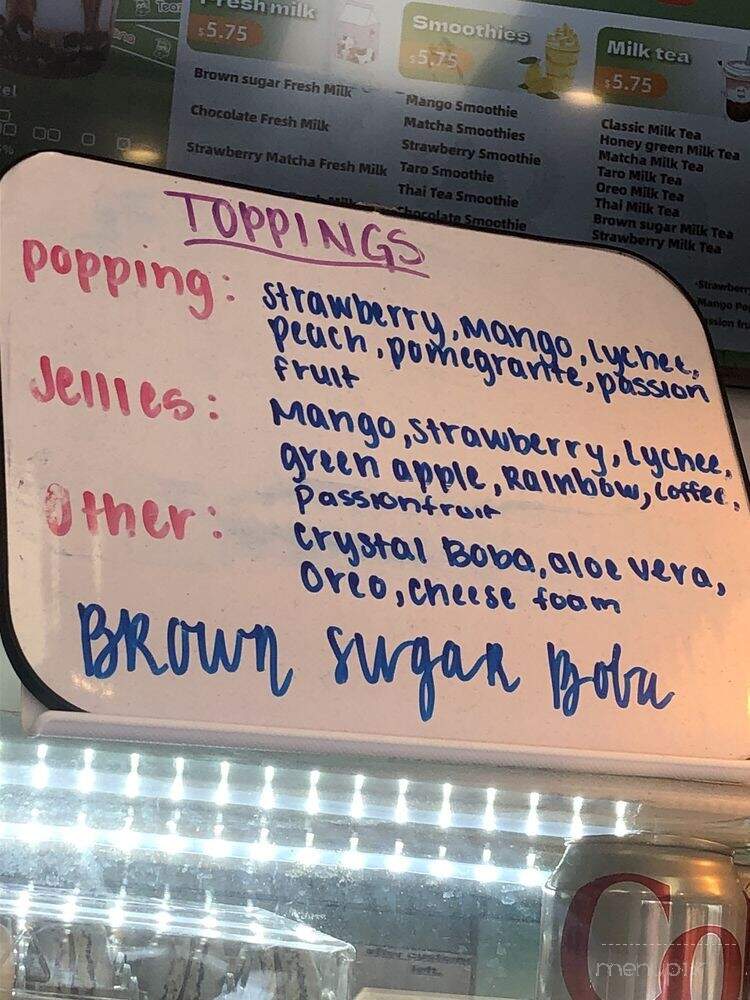 Fresh milk
$5.75
Brown sugar Fresh Milk
Chocolate Fresh Milk
Strawberry Matcha Fresh Milk
Smoothies
$5.75
Mango Smoothie
Matcha Smoothies
Strawberry Smoothie
Taro Smoothie
Thai Tea Smoothie
Chocolate Smoothie
Milk tea
$5.75
Classic Milk Tea
Honey green Milk Tea
Matcha Milk Tea
Taro Milk Tea
Oreo Milk Tea
Thai Milk Tea
Brown sugar Milk Tea
Strawberry Milk Tea
TOPPINGS
popping: strawberry, Mango, lychee,
peach, pomegrante, passion
fruit
Jellies: Mango, strawberry, lychee,
green apple, Rainbow, coffee,
passionfruit
Other: crystal Boba, aloe vera,
Oreo, cheese foam
BROWN sugar Boba
Co
menupix